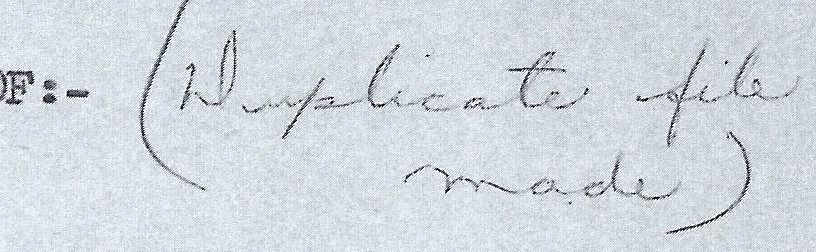 OF:- (Duplicate file
made)